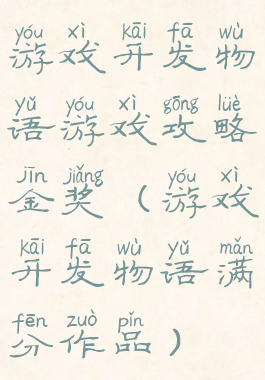 yóu xì kāi fā wù
游戏开发物
yǔ yóu xì gōng lüè
语游戏攻略
jīn jiǎng yóu xì
金奖（游戏
kāi fā wù yǔ mǎn
开发物语满
fēn zuò pǐn
分作品）